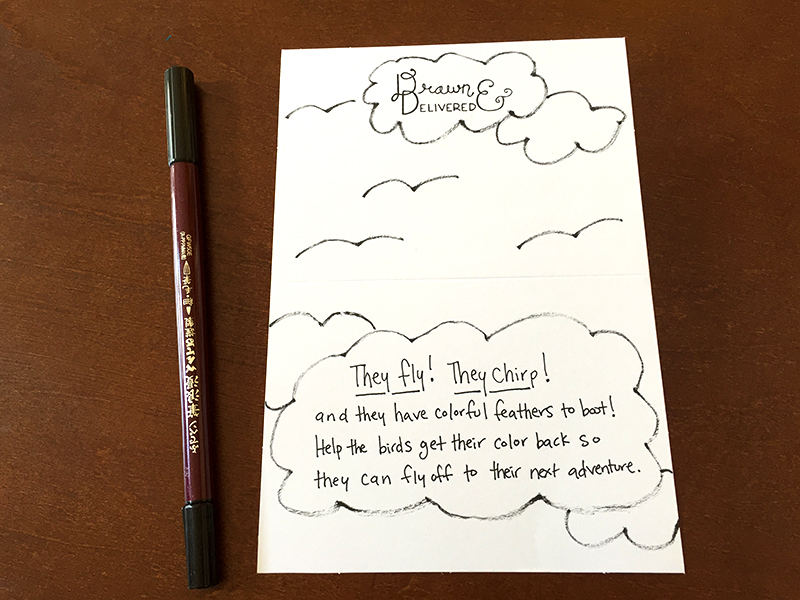 Brawn &
Delivered
They fly! They Chirp!
and they have colorful feathers to boot!
Help the birds get their color back so
they can fly off to their next adventure.